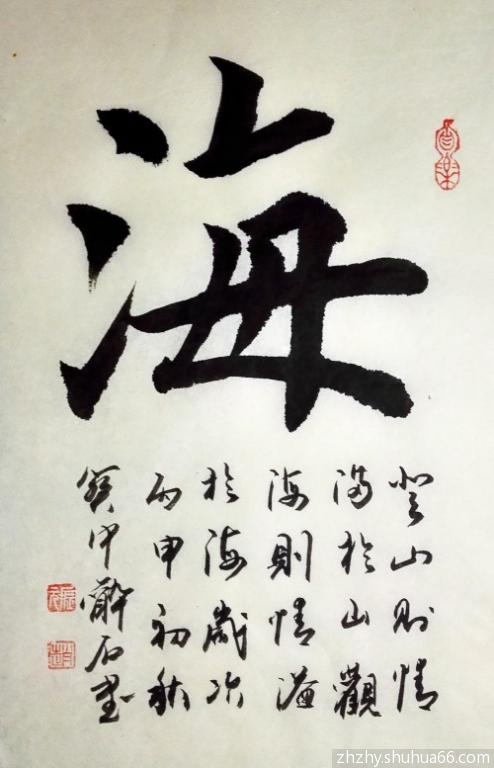 海
登山则情
满於山觀
海則情溢
於海歲次
丙申初秋
醉石書
zhzhy.shuhua66.com